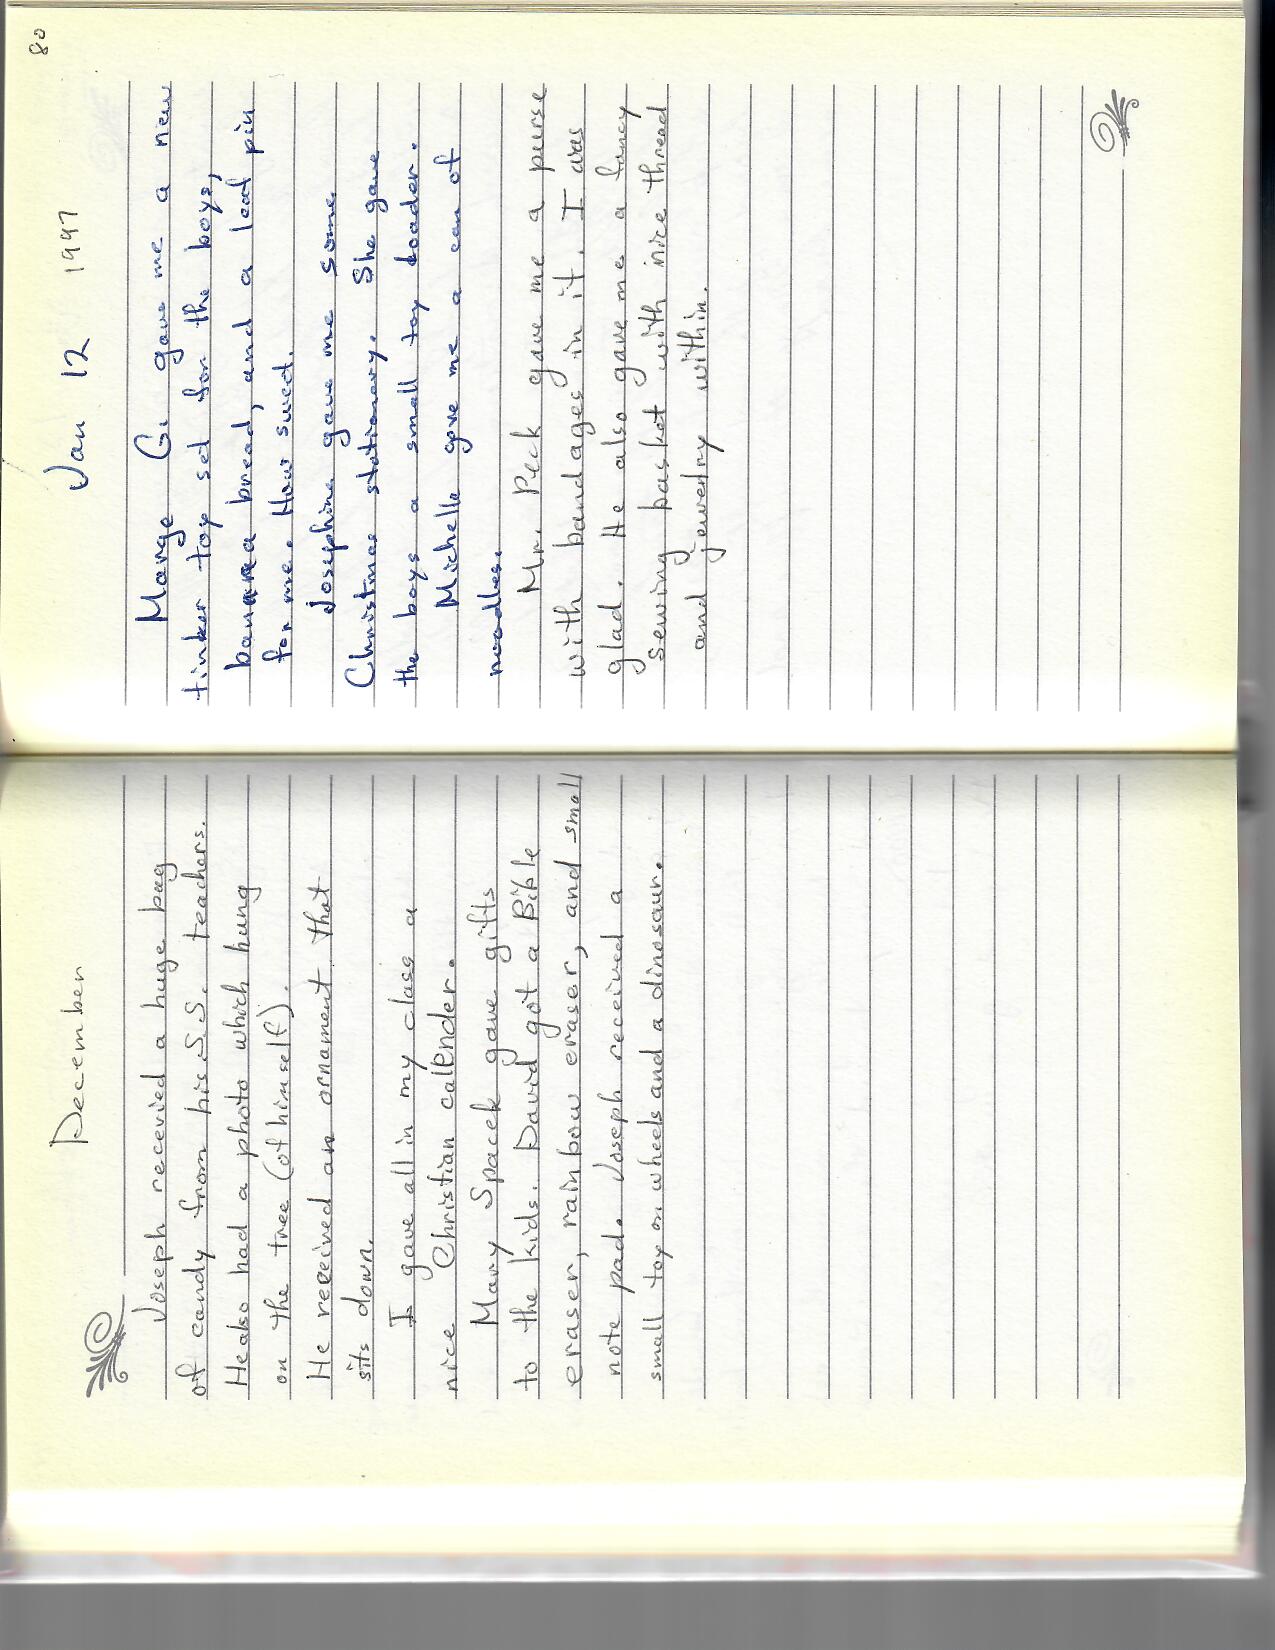 December
Joseph recevied a huge bag
of candy from his S.S. teachers.
He also had a photo which hung
on the tree (of himself).
He received an ornament that
sits down.
I gave all in my class a
nice Christian calender.
Mary Spacek gave gifts
to the kids. David got a Bible
eraser, rainbow eraser, and small
note pad. Joseph received a
small toy on wheels and a dinosaur.
80
Jan 12 1997
Marge G. gave me a new
tinker toy set for the boys,
banana bread, and a leaf pin
for me. How sweet.
Josephine gave me some
Christmas stationery. She gave
the boys a small toy loader.
Michelle gave me a can of
noodles.
Mr. Peck gave me a purse
with bandages in it. I was
glad. He also gave me a fancy
sewing basket with nice thread
and jewelry within.